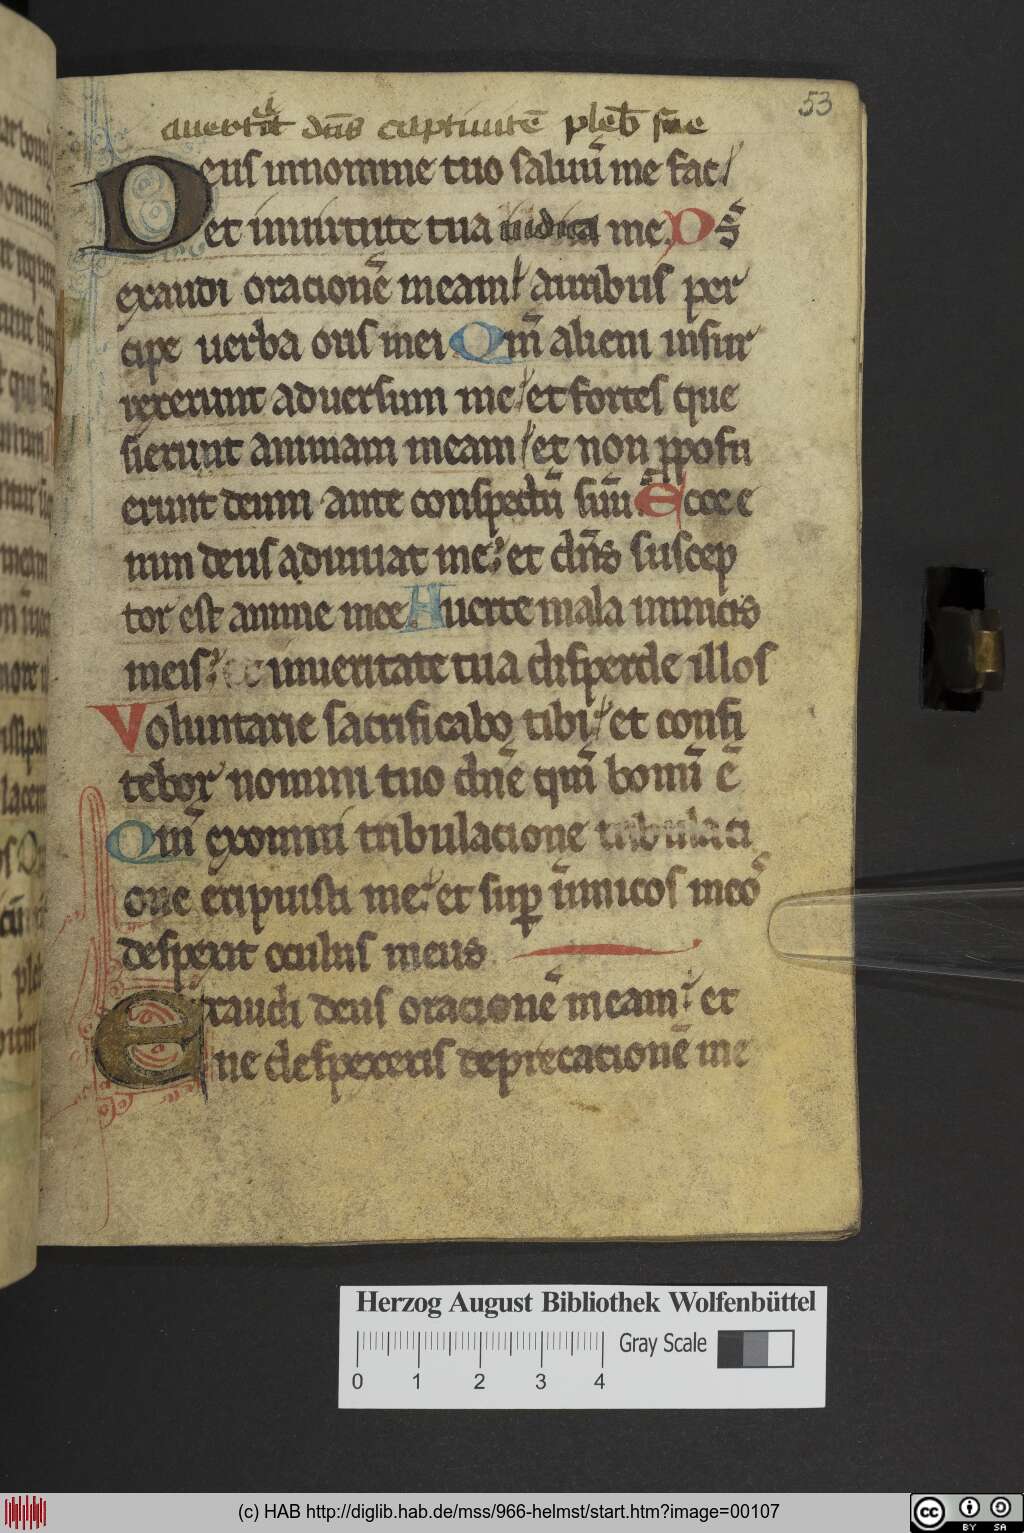 53
auertit dn̄s captiuitē pleb̄ sue
Deus in nomine tuo saluū me fac
et in uirtute tua iudica me. Ds̄
exaudi oracionē meam auribus per
cipe uerba oris mei Qm̄ alieni insur
rexerunt aduersum me et fortes que
sierunt animam meam et non pposu
erunt deum ante conspectū suū Ecce e
nim deus adiuuat me et dn̄s suscep
tor est anime mee. Auerte mala inimicis
meis et in ueritate tua disperde illos
Voluntarie sacrificabo tibi et confi
tebor nomini tuo dn̄e qm̄ bonū ē
Qm̄ ex omni tribulacione tribulaci
one eripuisti me et sup̄ inimicos meos
despexit oculus meus
Exaudi deus oracionē meam et
ne despexeris deprecationē me
Herzog August Bibliothek Wolfenbüttel
Gray Scale
0 1 2 3 4
(c) HAB http://diglib.hab.de/mss/966-helmst/start.htm?image=00107
cc BY SA